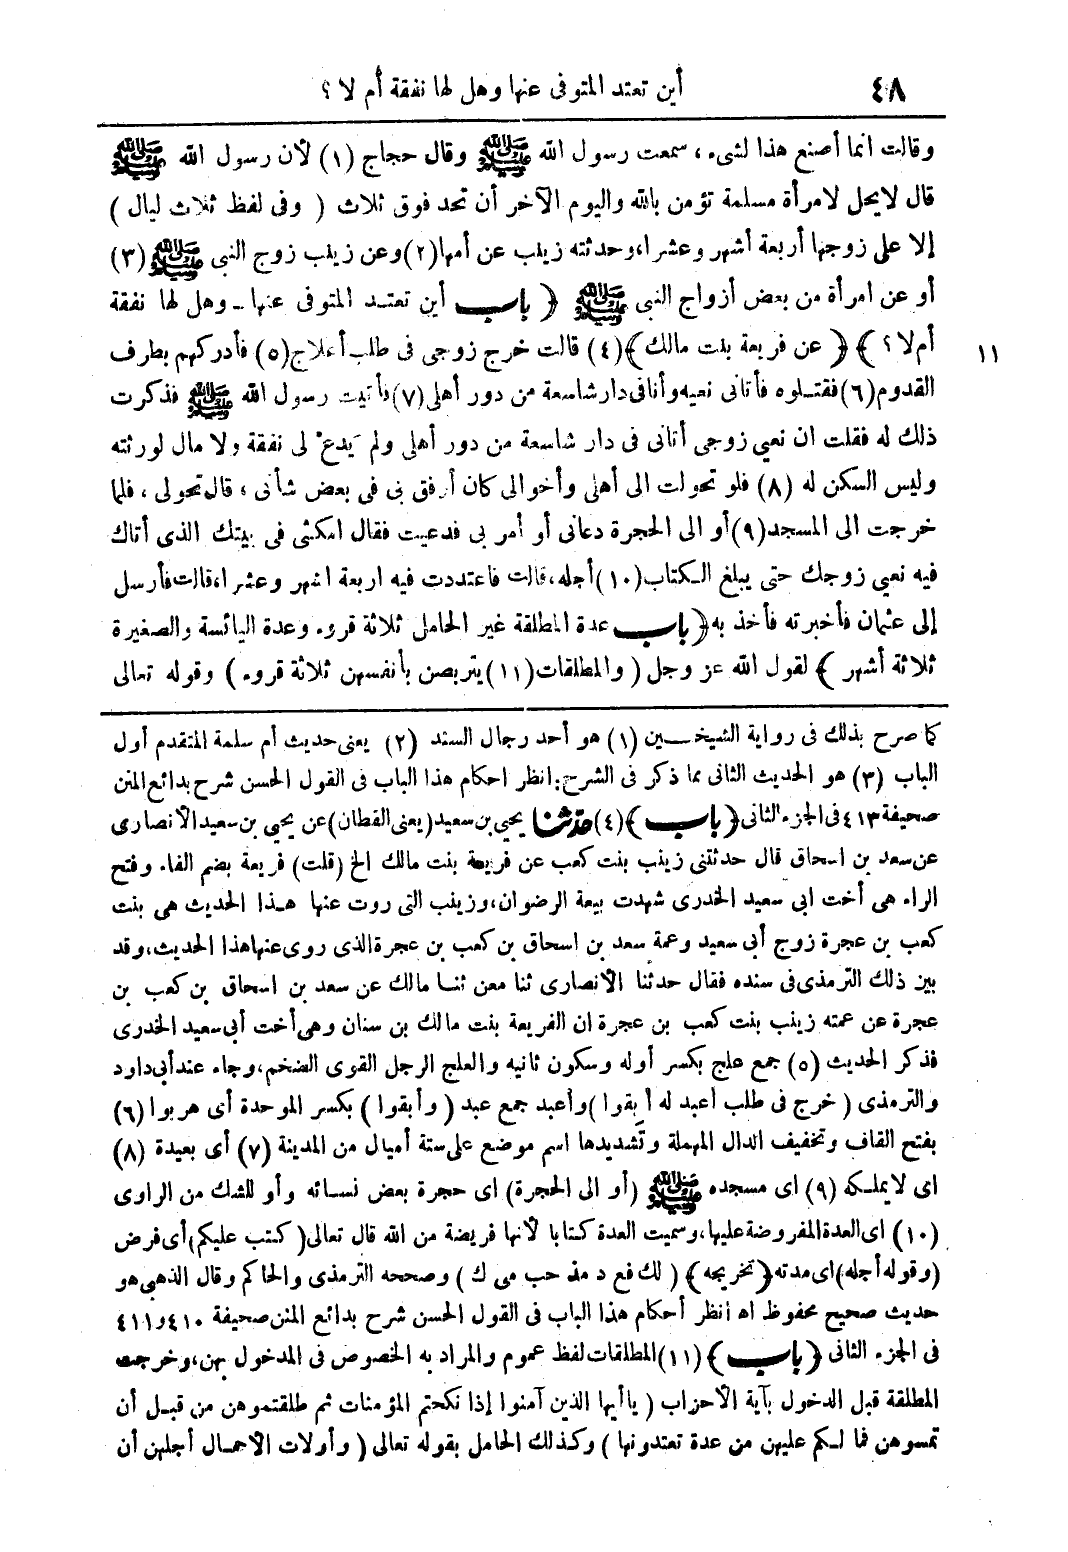 ٤٨ أين تعتد المتوفى عنها وهل لها نفقة أم لا ؟
وقالت انما أصنع هذا لشىء ، سمعت رسول الله ﷺ وقال حجاج (١) لأن رسول الله ﷺ
قال لايحل لامرأة مسلمة تؤمن بالله واليوم الآخر أن تحد فوق ثلاث ( وفى لفظ ثلاث ليال )
إلا على زوجها أربعة أشهر وعشرا، وحدثته زينب عن أمها (٢) وعن زينب زوج النبى ﷺ (٣)
أو عن امرأة من بعض أزواج النبى ﷺ ﴿ باب أين تعتد المتوفى عنها ـ وهل لها نفقة
أم لا ؟ ﴾ ﴿ عن فريعة بنت مالك ﴾ (٤) قالت خرج زوجى فى طلب أعلاج (٥) فأدركهم بطرف
١١
القدوم (٦) فقتلوه فأتانى نعيه وأنا فى دار شاسعة من دور أهلى (٧) فأتيت رسول الله ﷺ فذكرت
ذلك له فقلت ان نعي زوجى أتانى فى دار شاسعة من دور أهلى ولم يَدعْ لى نفقة ولا مال لورثته
وليس السكن له (٨) فلو تحولت الى أهلى وأخوالى كان أرفق بى فى بعض شأنى ، قال تحولى ، فلما
خرجت الى المسجد (٩) أو الى الحجرة دعانى أو أمر بى فدعيت فقال امكثى فى بيتك الذى أتاك
فيه نعي زوجك حتى يبلغ الكتاب (١٠) أجله، قالت فاعتددت فيه اربعة اشهر وعشرا، قالت فأرسل
إلى عثمان فأخبرته فأخذ به ﴿ باب عدة المطلقة غير الحامل ثلاثة قروء وعدة اليائسة والصغيرة
ثلاثة أشهر ﴾ لقول الله عز وجل ( والمطلقات (١١) يتربصن بأنفسهن ثلاثة قروء ) وقوله تعالى
كما صرح بذلك فى رواية الشيخين (١) هو أحد رجال السند (٢) يعنى حديث أم سلمة المتقدم أول
الباب (٣) هو الحديث الثانى مما ذكر فى الشرح : انظر احكام هذا الباب فى القول الحسن شرح بدائع المنن
صحيفة ٤١٣ فى الجزء الثانى ﴿ باب ﴾ (٤) حدثنا يحيى بن سعيد (يعنى القطان) عن يحيى بن سعيد الأنصارى
عن سعد بن اسحاق قال حدثتنى زينب بنت كعب عن فريعة بنت مالك الخ (قلت) فريعة بضم الفاء وفتح
الراء هى أخت ابى سعيد الخدرى شهدت بيعة الرضوان، وزينب التى روت عنها هذا الحديث هى بنت
كعب بن عجرة زوج أبى سعيد وعمة سعد بن اسحاق بن كعب بن عجرة الذى روى عنها هذا الحديث، وقد
بين ذلك الترمذى فى سنده فقال حدثنا الأنصارى ثنا معن ثنا مالك عن سعد بن اسحاق بن كعب بن
عجرة عن عمته زينب بنت كعب بن عجرة ان الفريعة بنت مالك بن سنان وهى أخت أبى سعيد الخدرى
فذكر الحديث (٥) جمع علج بكسر أوله وسكون ثانيه والعلج الرجل القوى الضخم، وجاء عند أبى داود
والترمذى ( خرج فى طلب أعبد له أبقوا ) وأعبد جمع عبد ( وأبقوا ) بكسر الموحدة أى هربوا (٦)
بفتح القاف وتخفيف الدال المهملة وتشديدها اسم موضع على ستة أميال من المدينة (٧) أى بعيدة (٨)
اى لا يملكه (٩) اى مسجده ﷺ (أو الى الحجرة) اى حجرة بعض نسائه وأو للشك من الراوى
(١٠) اى العدة المفروضة عليها، وسميت العدة كتابا لأنها فريضة من الله قال تعالى (كتب عليكم) أى فرض
(وقوله أجله) اى مدته ﴿ تخريجه ﴾ ( لك فع د مذ حب مى ك ) وصححه الترمذى والحاكم وقال الذهبى هو
حديث صحيح محفوظ اهـ انظر أحكام هذا الباب فى القول الحسن شرح بدائع المنن صحيفة ٤١٠ و ٤١١
فى الجزء الثانى ﴿ باب ﴾ (١١) المطلقات لفظ عموم والمراد به الخصوص فى المدخول بهن، وخرجت
المطلقة قبل الدخول بآية الأحزاب ( ياأيها الذين آمنوا إذا نكحتم المؤمنات ثم طلقتموهن من قبل أن
تمسوهن فما لكم عليهن من عدة تعتدونها ) وكذلك الحامل بقوله تعالى ( وأولات الأحمال أجلهن أن